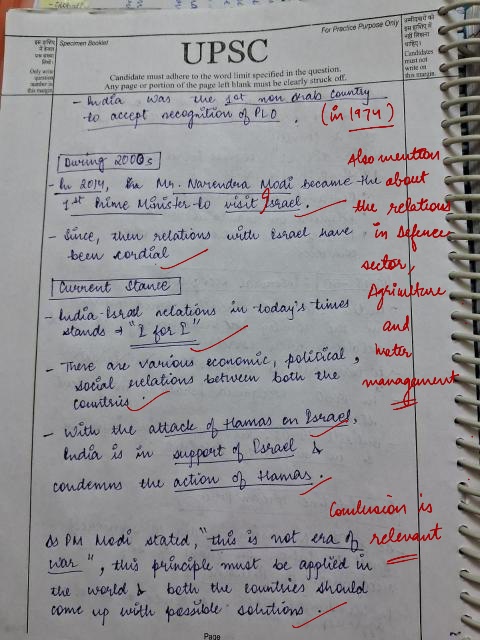 इस हाशिए
में केवल
प्रश्न संख्या
लिखें।
Only write
question
number in
this margin.
Specimen Booklet
For Practice Purpose Only
UPSC
Candidate must adhere to the word limit specified in the question.
Any page or portion of the page left blank must be clearly struck off.
उम्मीदवारों को
इस हाशिए
में नहीं लिखना
चाहिए।
Candidates
must not
write on
this margin.
- India was the 1st non arab country
to accept recognition of PLO.
(in 1974)
During 2000s
- In 2014, the Mr. Narendra Modi became the
1st Prime Minister to visit Israel.
- Since, then relations with Israel have
been cordial
Also mention
about
the relations
in defence
sector,
Agriculture
and
water
management
Current Stance
- India-Israel relations in today's times
stands → "I for I"
- There are various economic, political,
social relations between both the
countries.
- With the attack of Hamas on Israel,
India is in support of Israel &
condemns the action of Hamas.
Conclusion is
relevant
As PM Modi stated, "this is not era of
war", this principle must be applied in
the world & both the countries should
come up with possible solutions.
Page